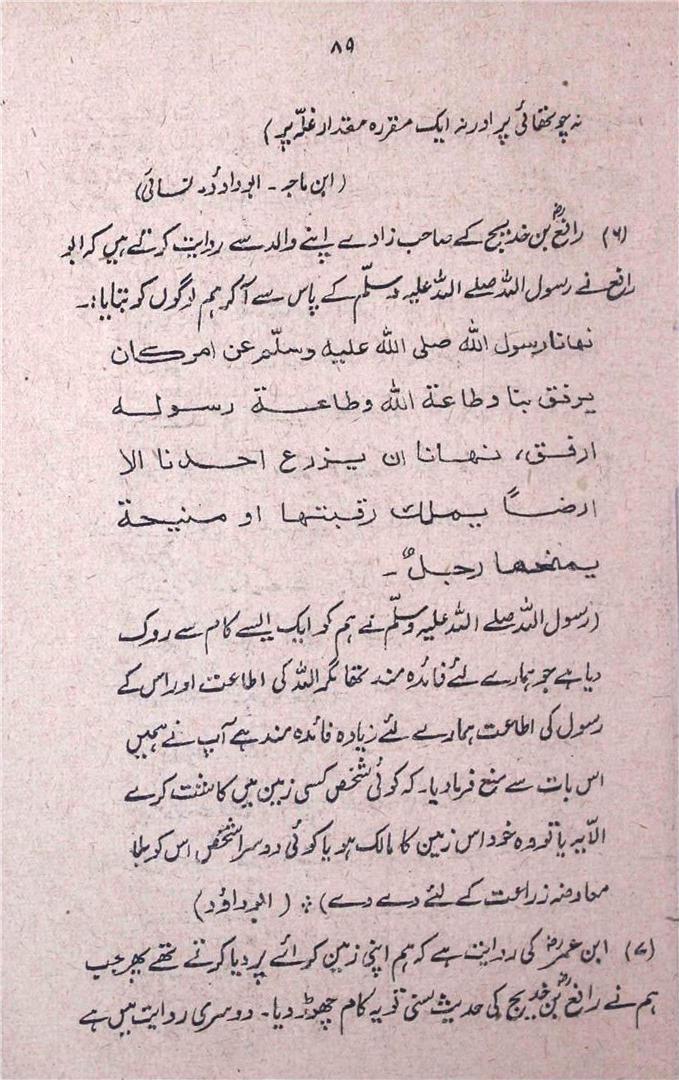 ۸۹
نہ چوتھائی پر اور نہ ایک مقررہ مقدار غلّہ پر)
(ابن ماجہ - ابوداؤد - نسائی)
(۶) رافعؓ بن خدیج کے صاحب زادے اپنے والد سے روایت کرتے ہیں کہ ابو
رافع نے رسول اللہ صلے اللہ علیہ وسلّم کے پاس سے آکر ہم لوگوں کو بتایا:۔
نهانا رسول الله صلى الله عليه وسلّم عن امر كان
يرفق بنا وطاعة الله وطاعة رسوله
ارفق، نهانا ان يزرع احدنا الا
ارضاً يملك رقبتها او منيحة
يمنحها رجلٌ ـ
(رسول اللہ صلے اللہ علیہ وسلّم نے ہم کو ایک ایسے کام سے روک
دیا ہے جو ہمارے لئے فائدہ مند تھا مگر اللہ کی اطاعت اور اس کے
رسول کی اطاعت ہمارے لئے زیادہ فائدہ مند ہے آپ نے ہمیں
اس بات سے منع فرمادیا۔ کہ کوئی شخص کسی زمین میں کاشت کرے
الّا یہ یا تو وہ خود اس زمین کا مالک ہو یا کوئی دوسرا شخص اس کو بلا
معاوضہ زراعت کے لئے دے دے) ؞ (ابوداؤد)
(۷) ابن عمرؓ کی روایت ہے کہ ہم اپنی زمین کرائے پر دیا کرتے تھے پھر جب
ہم نے رافعؓ بن خدیج کی حدیث سنی تو یہ کام چھوڑ دیا۔ دوسری روایت میں ہے